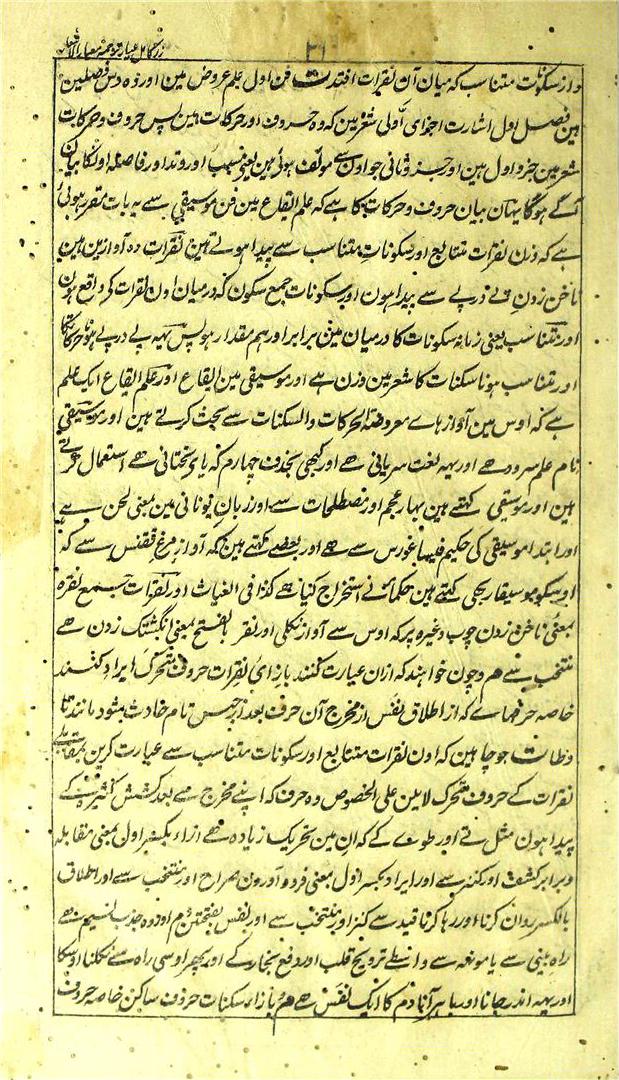 زر کامل عیار ترجمہ معیار الاشعار
۲۱
و از سکونات متناسب کہ میان آن نقرات افتد فن اول علم عروض مین اور وہ دس فصلین
ہین فصل اول اشارت اجزای اولی شعر مین کہ وہ حروف اور حرکات ہین پس حروف و حرکات
شعر مین جزو اول ہین اور جزو ثانی جو اون سے مولف ہوئی ہین یعنی سبب اور وتد اور فاصلہ اونکا بیان
آگے ہوگا یہان بیان حروف و حرکات کا ہے کہ علم ایقاع مین فن موسیقی سے یہ بات مقرر ہوئی
ہے کہ وزن نقرات متتابع اور سکونات متناسب سے پیدا ہوتے ہین نقرات وہ آوازین ہین
ناخن زدن پے در پے سے پیدا ہون اور سکونات جمع سکون کہ درمیان اون نقرات کے واقع ہون
اور متناسب یعنی زمانہ سکونات کا درمیان مین برابر اور ہم مقدار ہو پس یہہ پے در پے ہونا حرکات کا
اور متناسب ہونا سکنات کا شعر مین وزن ہے اور موسیقی مین ایقاع اور علم ایقاع ایک علم
ہے کہ اوس مین آواز ہاے معروضۃ الحرکات والسکنات سے بحث کرتے ہین اور موسیقی
نام علم سرود ہے اور یہہ لغت سریانی ہے اور کبھی بحذف چہارم کہ یای تحتانی ہے استعمال کرتے
ہین اور موسقی کہتے ہین بہار عجم اور مصطلحات سے اور زبان یونانی مین بمعنی لحن ہے
اور ابتدا موسیقی کی حکیم فیثاغورس سے ہے اور بعضے کہتے ہین کہ آواز مرغ ققنس سے کہ
اوسکو موسیقار بھی کہتے ہین حکما نے استخراج کیا ہے کذا فی الغیاث اور نقرات جمع نقرہ
بمعنی ناخن زدن چوب وغیرہ پر کہ اوس سے آواز نکلی اور نقر بالفتح بمعنی انگشتک زدن ہے
منتخب سے ہم وچون خواہند کہ ازان عبارت کنند بازای نقرات حروف متحرک ایراد کنند
خاصہ حرفہای کہ از اطلاق نفس از مخرج آن حرف بعد از حبس تام حادث شود مانند تا
وطا ت جو چاہین کہ اون نقرات متتابع اور سکونات متناسب سے عبارت کرین بمقابلہ
نقرات کے حروف متحرک لاین علی الخصوص وہ حرف کہ اپنے مخرج سے بعد کشش کے
پیدا ہون مثل تے اور طوے کے کہ ان مین تحریک زیادہ ہے ازاء بکسر اول بمعنی مقابلہ
و برابر کشف اور کنز سے اور ایراد بکسر اول بمعنی فرود آوردن صراح اور منتخب سے اور اطلاق
بالکسر روان کرنا اور رہا کرنا قید سے کنز اور منتخب سے اور نفس بفتحتین دم اور وہ جذب نسیم ہے
راہ بینی سے یا مونھہ سے واسطے ترویح قلب اور دفع بخار کے اور پھر اوسی راہ سے نکلنا اوسکا
اور یہہ اندر جانا اور باہر آنا دم کا ایک نفس ہے هم و بازاء سکنات حروف ساکن خاصہ حروف